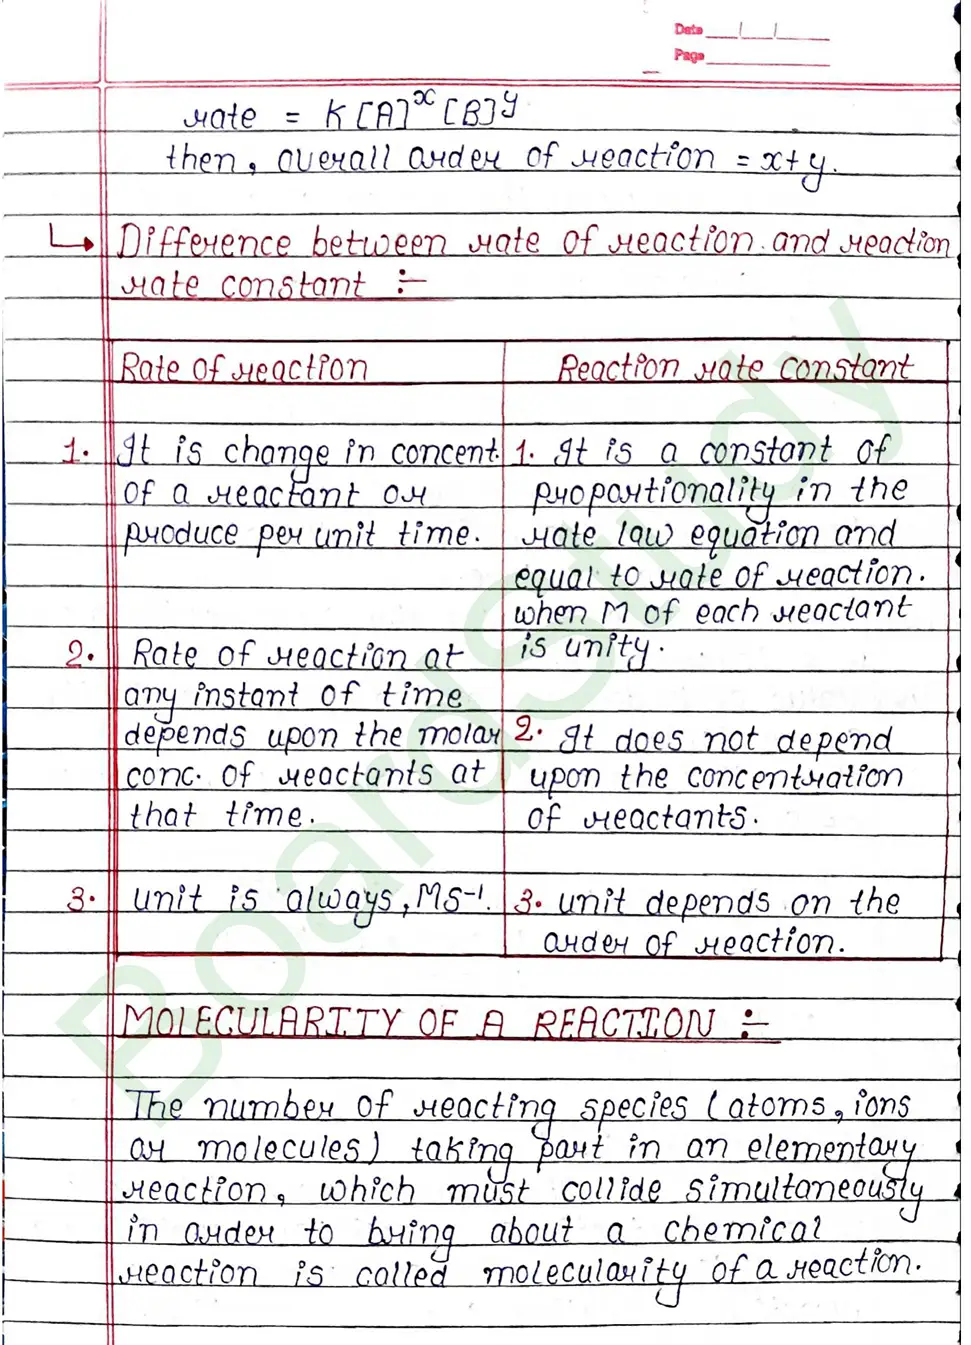 Date __/__/__
Page
rate = K[A]^x [B]^y
then, overall order of reaction = x+y.
↳ Difference between rate of reaction and reaction
rate constant :-
Rate of reaction
Reaction rate constant
1. It is change in concent.
of a reactant or
produce per unit time.
1. It is a constant of
proportionality in the
rate law equation and
equal to rate of reaction.
when M of each reactant
is unity.
2. Rate of reaction at
any instant of time
depends upon the molar
conc. of reactants at
that time.
2. It does not depend
upon the concentration
of reactants.
3. unit is always, MS⁻¹.
3. unit depends on the
order of reaction.
MOLECULARITY OF A REACTION :-
The number of reacting species (atoms, ions
or molecules) taking part in an elementary
reaction, which must collide simultaneously
in order to bring about a chemical
reaction is called molecularity of a reaction.
BoardStudy